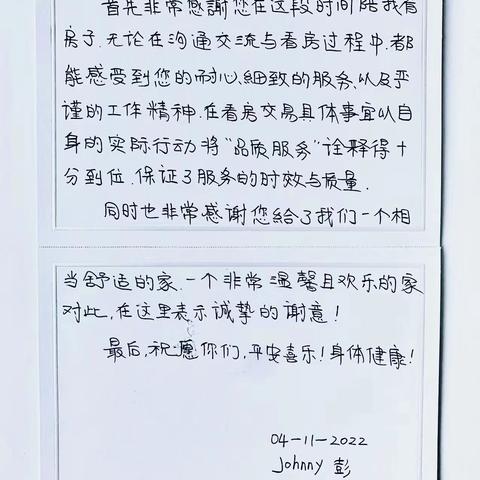 首先非常感謝您在这段时间陪我看
房子.无论在沟通交流与看房过程中.都
能感受到您的耐心、細致的服务、以及严
谨的工作精神.在看房交易具体事宜以自
身的实际行动将"品质服务"诠释得十
分到位.保证了服务的时效与质量.
同时也非常感谢您给了我们一个相
当舒适的家.一个非常温馨且欢乐的家
对此,在这里表示诚挚的谢意!
最后,祝愿你们,平安喜乐!身体健康!
04-11-2022
Johnny 彭